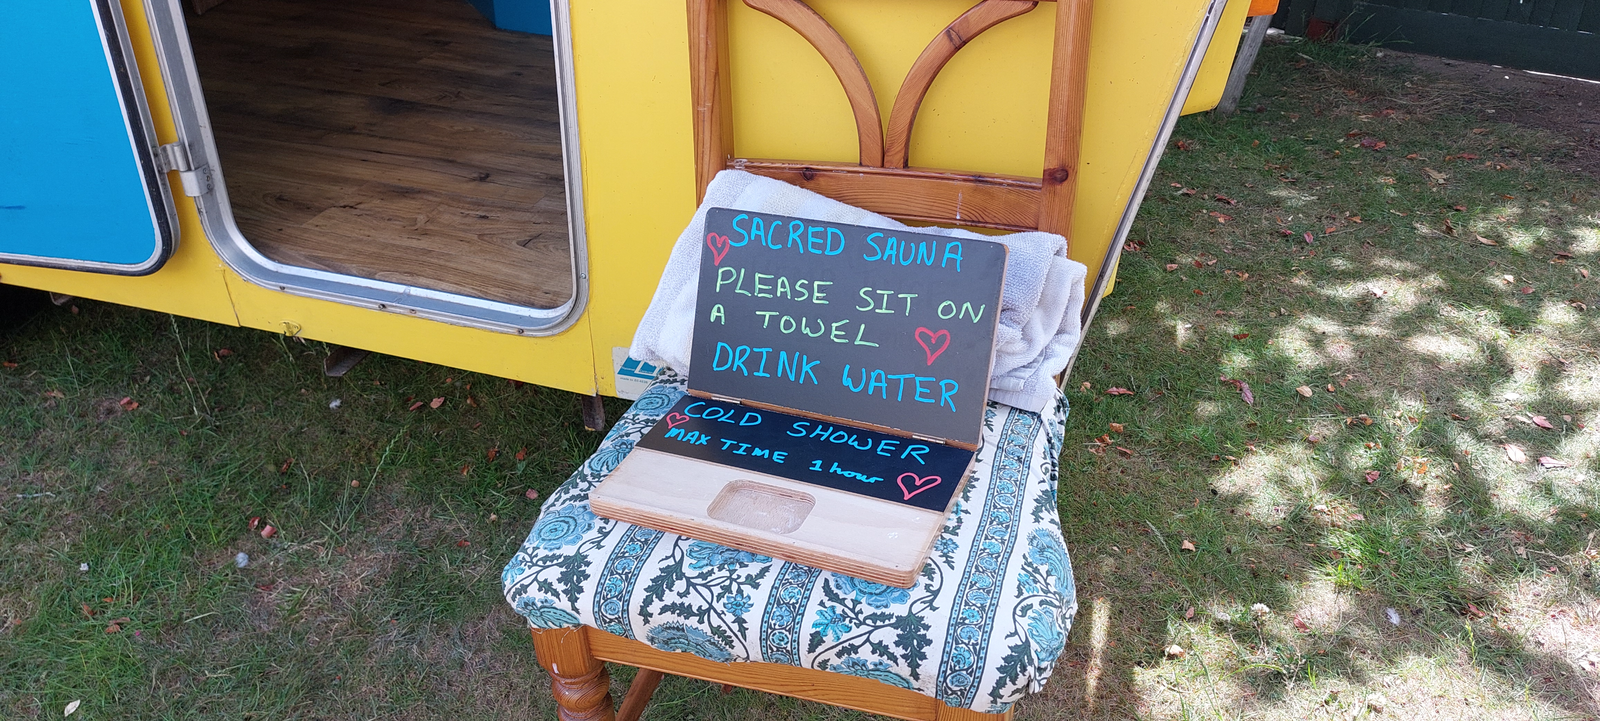 SACRED SAUNA
PLEASE SIT ON
A TOWEL
DRINK WATER
COLD SHOWER
MAX TIME 1 hour